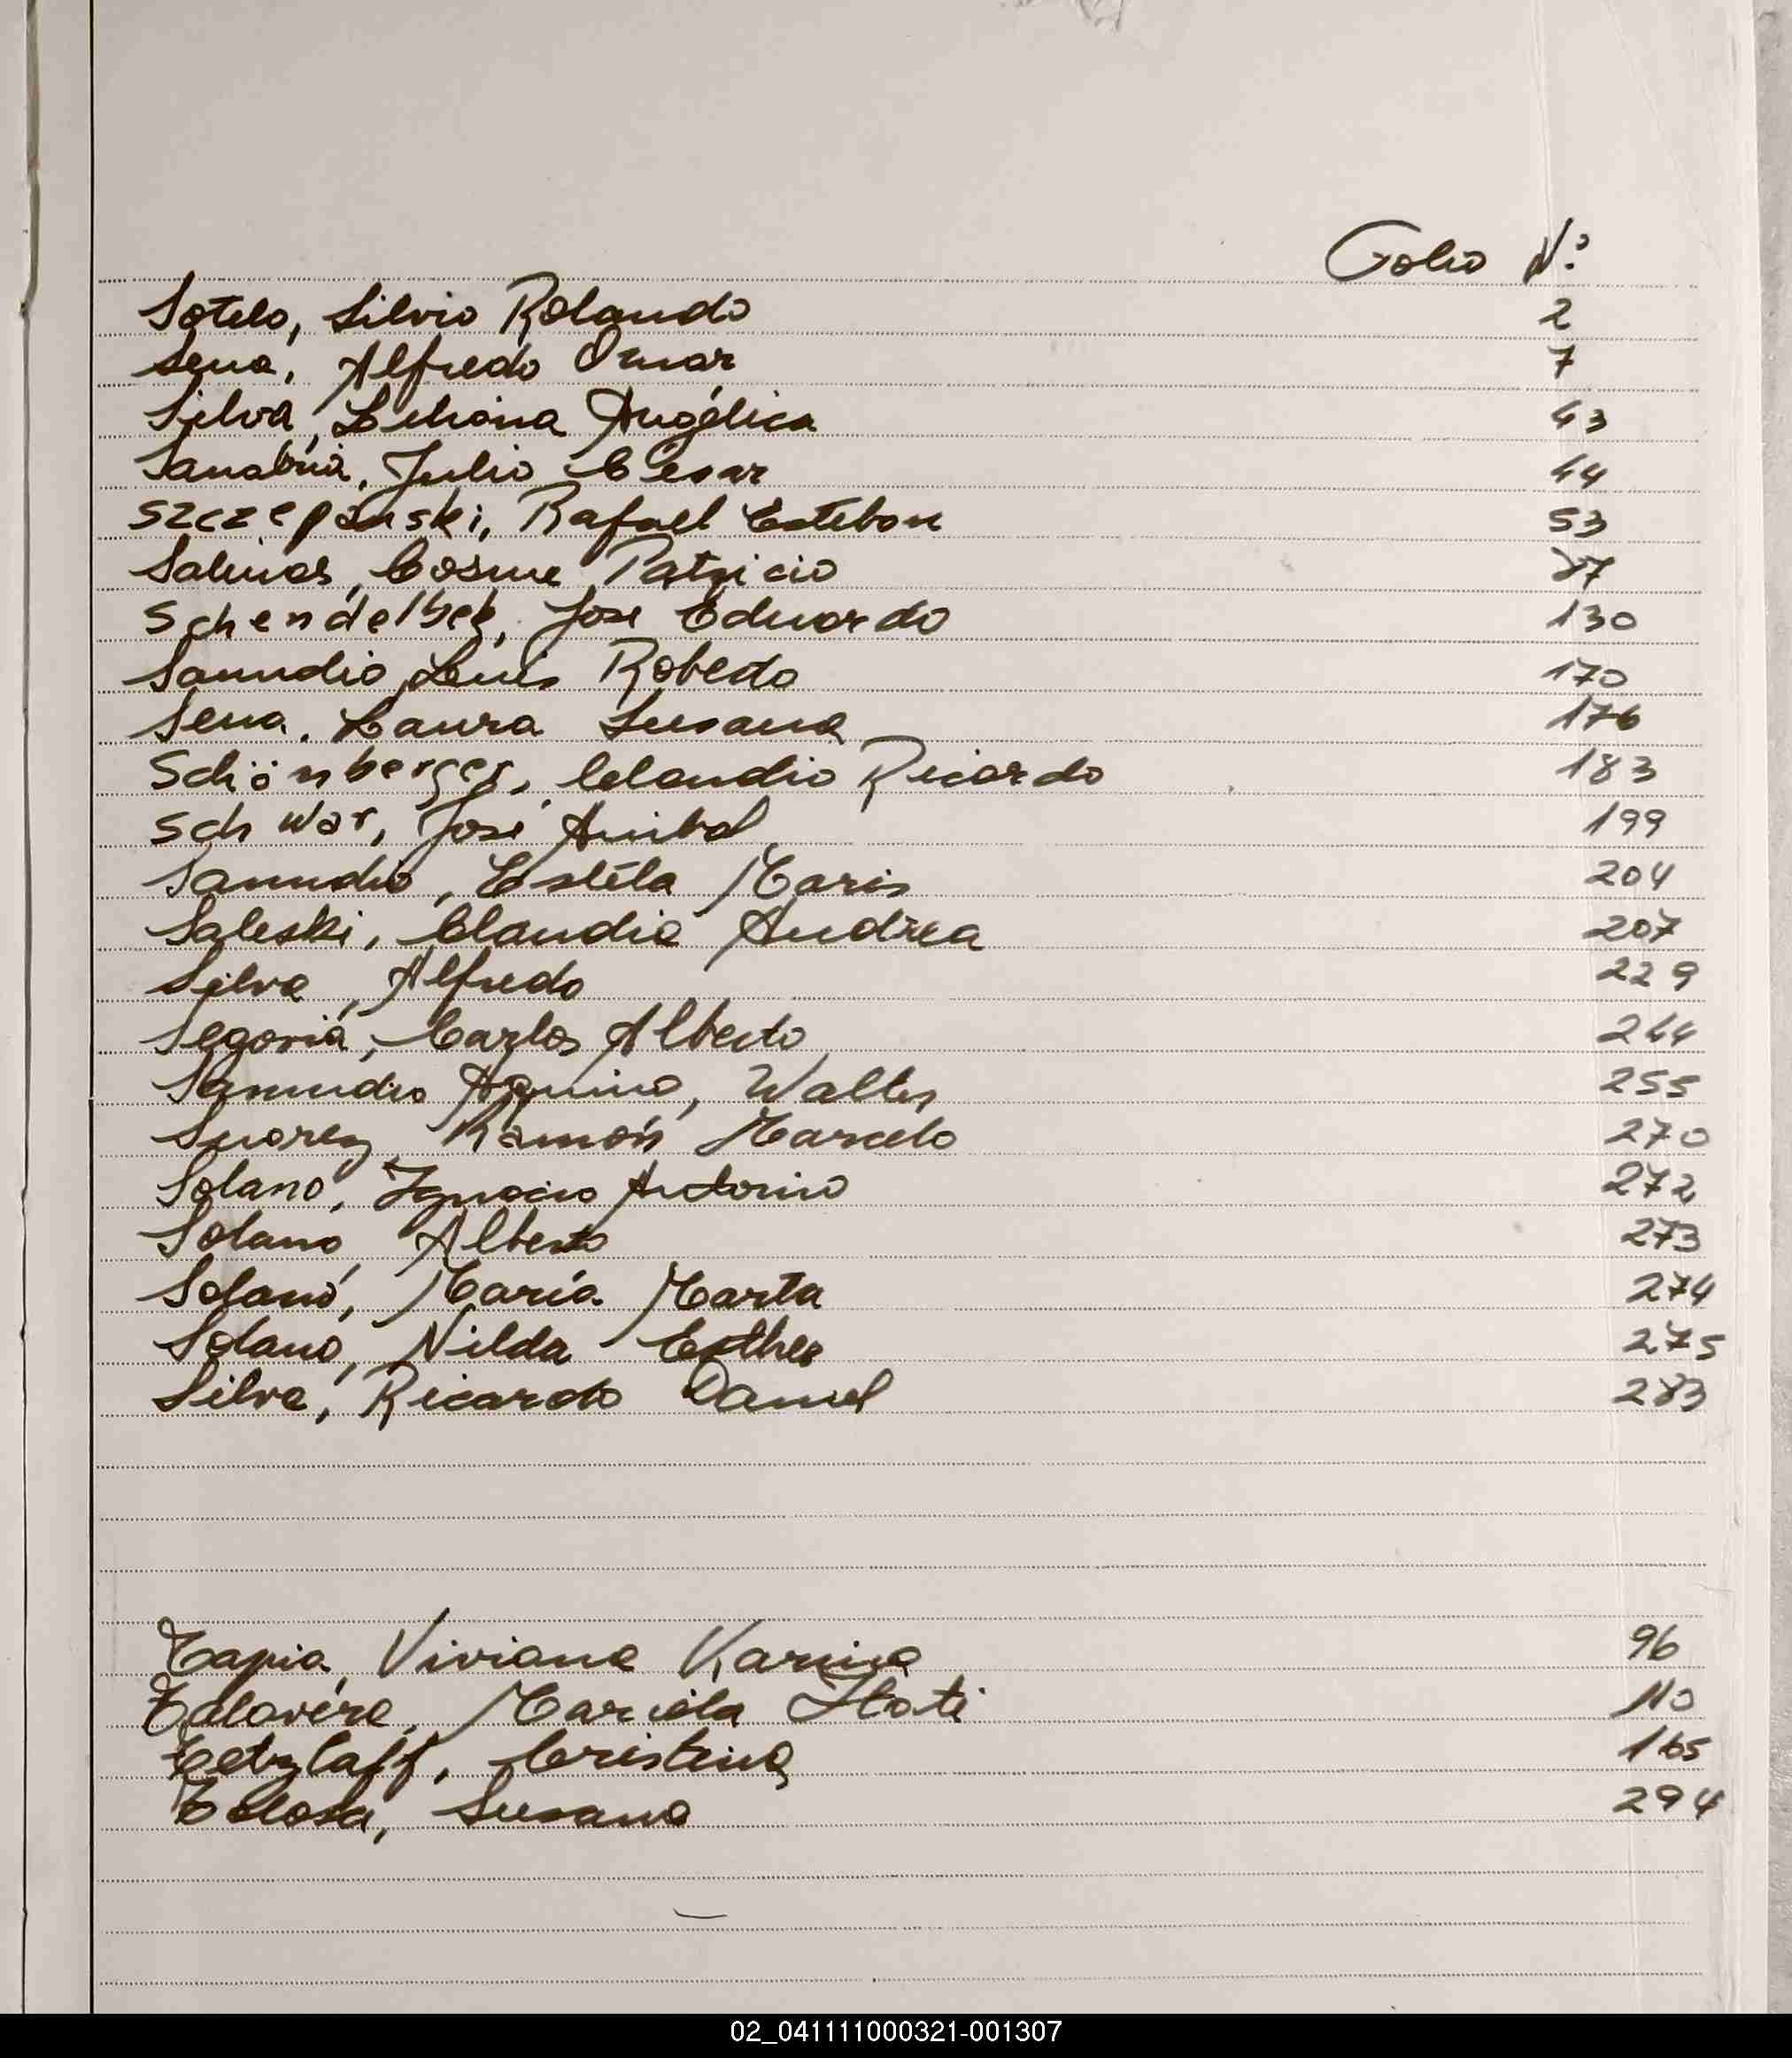 Folio N.º
Sotelo, Silvio Rolando 2
Sena, Alfredo Omar 7
Silva, Liliana Angélica 43
Sanabria, Julio Cesar 44
Szczepanski, Rafael Esteban 53
Salinas, Cosme Patricio 87
Schendelbek, Jose Eduardo 130
Samudio, Luis Roberto 170
Sena, Laura Susana 176
Schönberger, Claudio Ricardo 183
Schwar, José Anibal 199
Samudio, Estela Maris 204
Saleski, Claudia Andrea 207
Silva, Alfredo 229
Segovia, Carlos Alberto 244
Samudio Aquino, Walter 255
Suarez Ramón Marcelo 270
Solano, Ignacio Antonio 272
Solano, Alberto 273
Solano, María Marta 274
Solano, Nilda Esther 275
Silva, Ricardo Daniel 283
Tapia, Viviana Karina 96
Talavera, Mariela Itati 110
Tetzlaff, Cristina 165
Tolosa, Susana 294
02_041111000321-001307